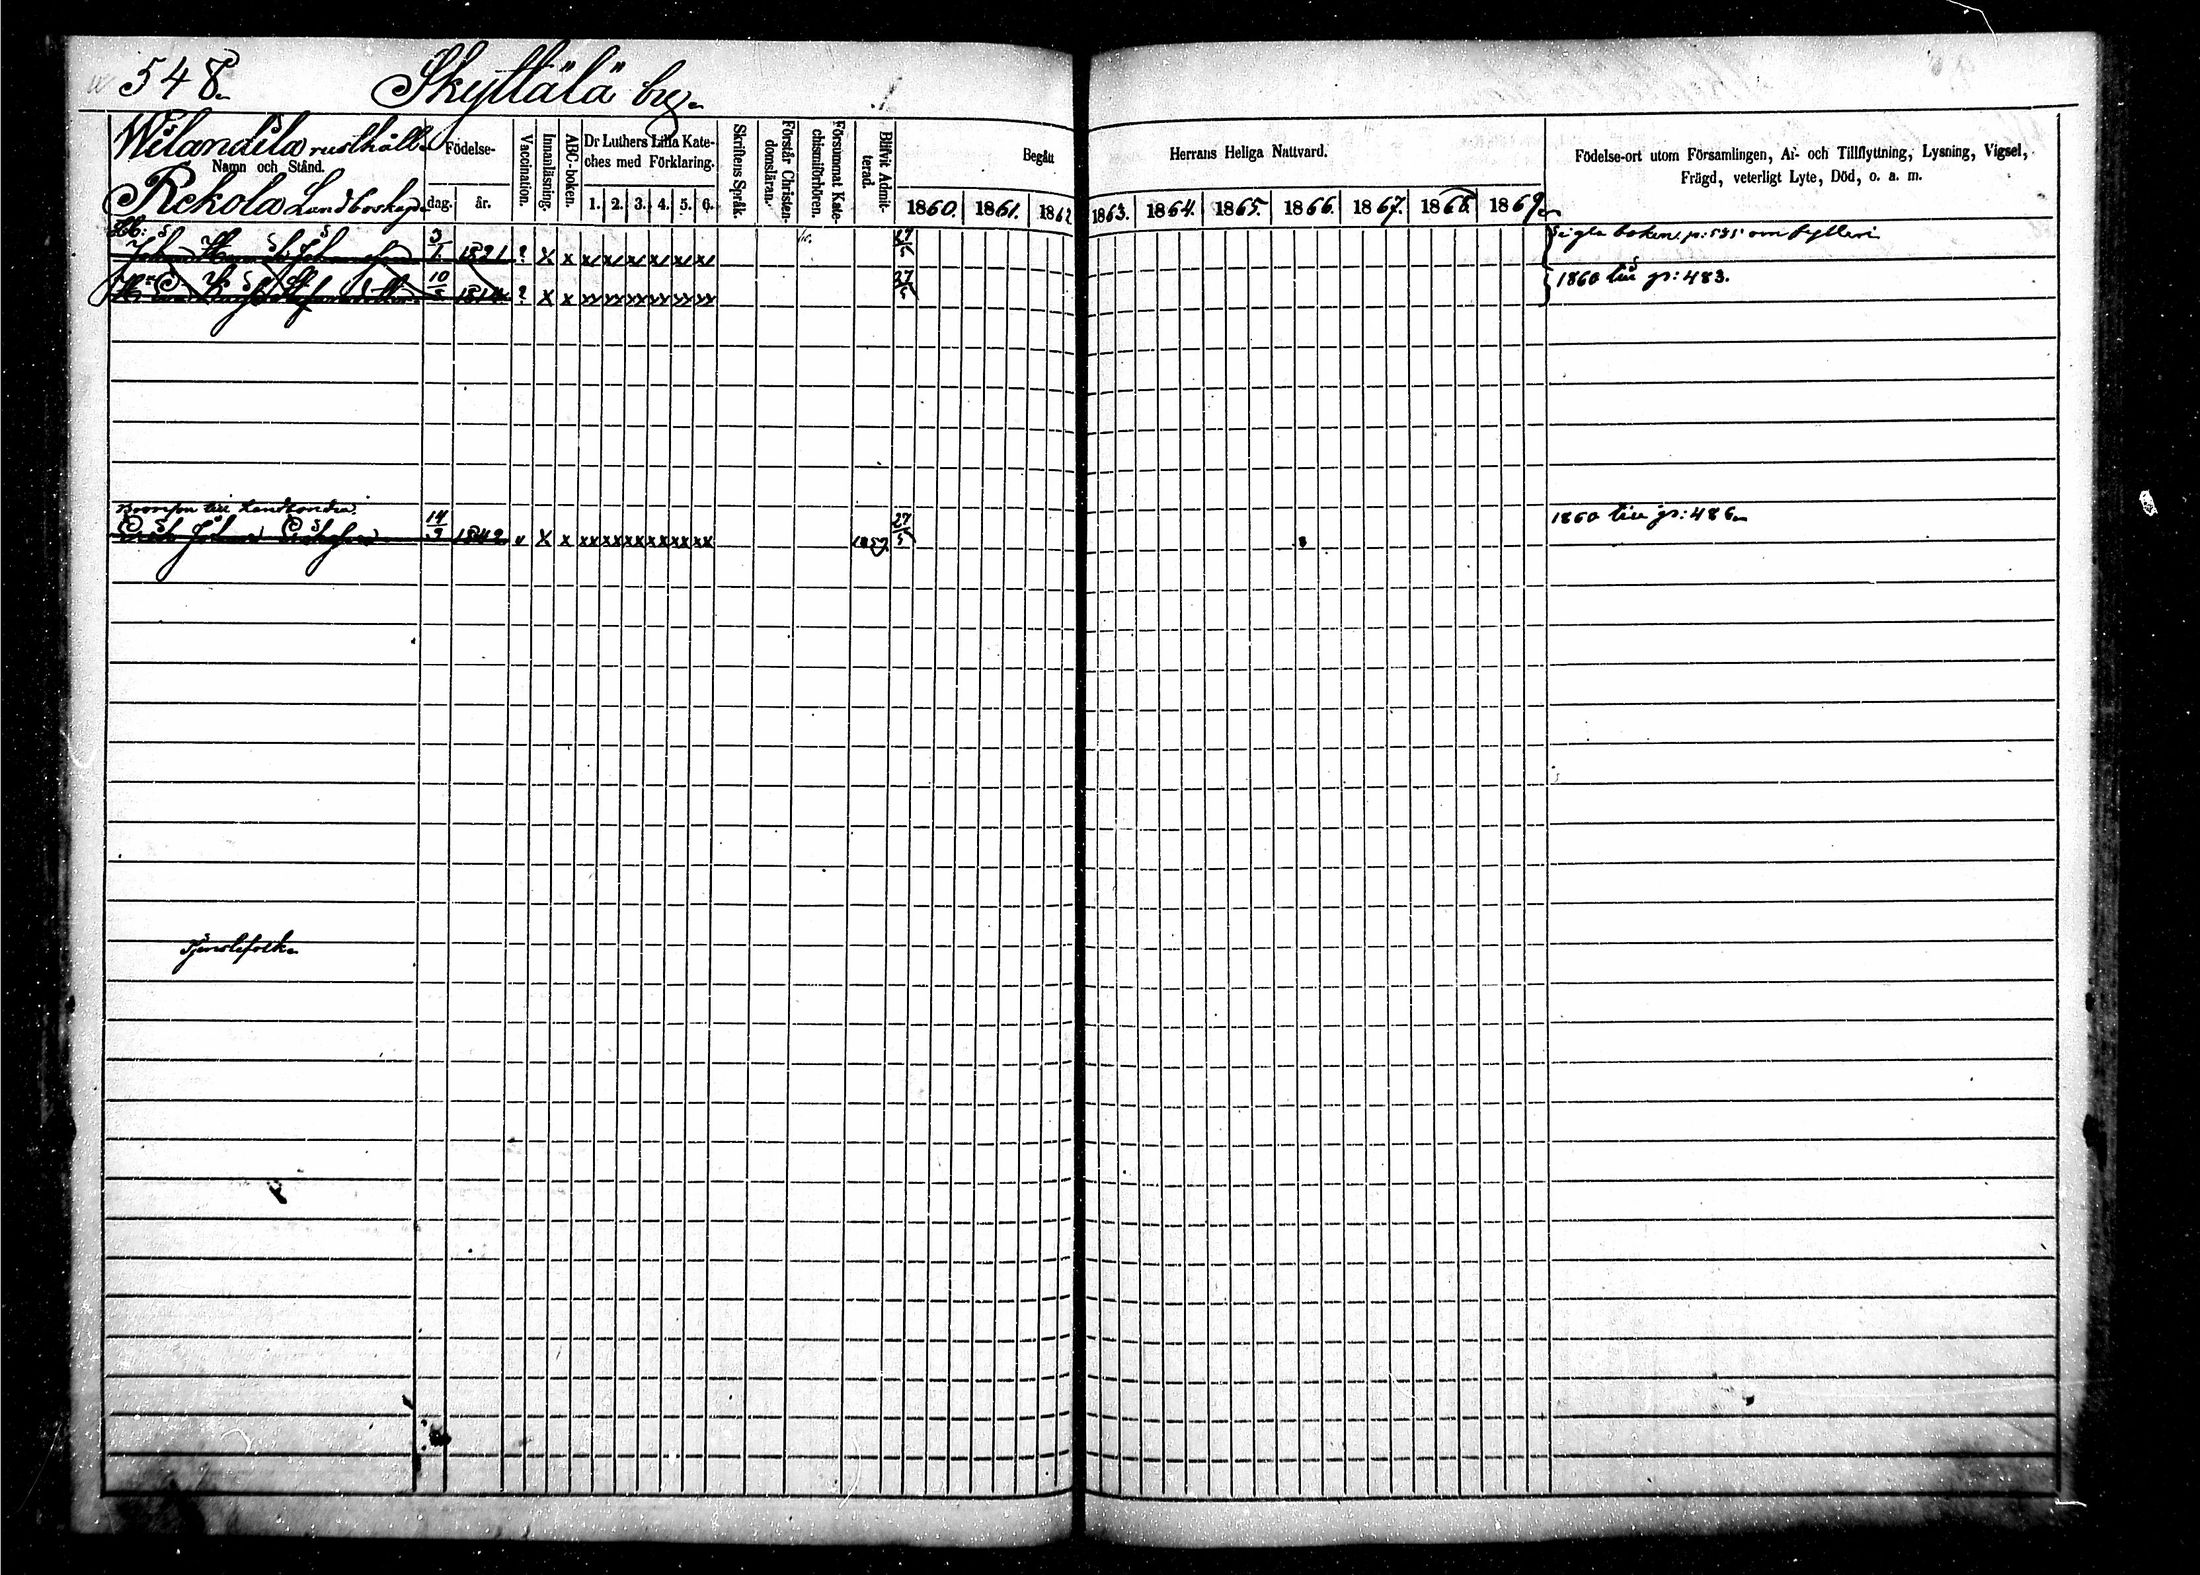 548. Skyttälä by.
Wilandila rusthåll
Namn och Stånd.
Rekola Landboskap
Födelse-
dag. år.
Vaccination.
Innanläsning.
ABC-boken.
Dr Luthers Lilla Kate-
ches med Förklaring.
1. 2. 3. 4. 5. 6.
Skriftens Språk.
Förstår Christen-
domsläran.
Försummat Kate-
chismiförhören.
Blifvit Admit-
terad.
Begått Herrans Heliga Nattvard.
1860. 1861. 1862 1863. 1864. 1865. 1866. 1867. 1868. 1869.
Födelse-ort utom Församlingen, Af- och Tillflyttning, Lysning, Vigsel,
Frägd, veterligt Lyte, Död, o. a. m.
Lb:
Johan Henrik Johansson 3/1 1821 ? X x x x x x x x 27/5 boken p: 531 om fylleri
10/5 1814 ? X x xx xx xx xx xx xx 27/5 1860 till p: 483.
till Landbondra
Erik Johan Eriksson 14/9 1842 v X x xx xx xx xx xx xx 1859 27/5 1860 till p: 486
Tjenstefolk